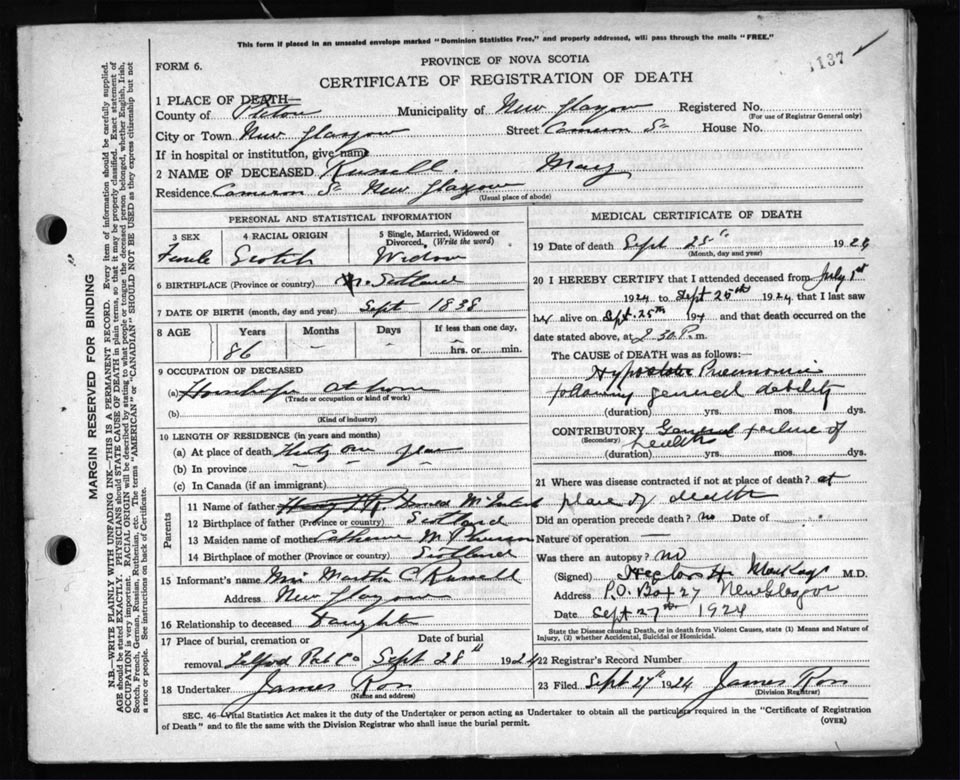 This form if placed in an unsealed envelope marked "Dominion Statistics Free," and properly addressed, will pass through the mails "FREE."
1137
FORM 6.
PROVINCE OF NOVA SCOTIA
CERTIFICATE OF REGISTRATION OF DEATH
1 PLACE OF DEATH—
County of Pictou Municipality of New Glasgow Registered No.
(For use of Registrar General only)
City or Town New Glasgow Street Cameron St House No.
If in hospital or institution, give name
2 NAME OF DECEASED Russell. Mary
Residence Cameron St New Glasgow
(Usual place of abode)
PERSONAL AND STATISTICAL INFORMATION
3 SEX 4 RACIAL ORIGIN 5 Single, Married, Widowed or Divorced. (Write the word)
Female Scotch Widow
6 BIRTHPLACE (Province or country) Scotland
7 DATE OF BIRTH (month, day and year) Sept 1838
8 AGE Years Months Days If less than one day,
86 — — — hrs. or min.
9 OCCUPATION OF DECEASED
(a) at home
(Trade or occupation or kind of work)
(b)
(Kind of industry)
10 LENGTH OF RESIDENCE (in years and months)
(a) At place of death
(b) In province
(c) In Canada (if an immigrant)
Parents
11 Name of father Donald
12 Birthplace of father (Province or country) Scotland
13 Maiden name of mother Catherine
14 Birthplace of mother (Province or country) Scotland
15 Informant's name Miss Martha C Russell
Address New Glasgow
16 Relationship to deceased Daughter
17 Place of burial, cremation or removal Date of burial
Telford Pict Co Sept 28" 1924
18 Undertaker James Ross
(Name and address)
MEDICAL CERTIFICATE OF DEATH
19 Date of death Sept 25th 1924
(Month, day and year)
20 I HEREBY CERTIFY that I attended deceased from July 1st
1924 to Sept 25th 1924 that I last saw
her alive on Sept. 25th 194 and that death occurred on
date stated above, at 2.30 P.m.
The CAUSE of DEATH was as follows:—
Hypostatic Pneumonia
following general debility
(duration) yrs. mos. dys.
CONTRIBUTORY General failure of
(Secondary) health
(duration) yrs. mos. dys.
21 Where was disease contracted if not at place of death? at
place of death
Did an operation precede death? no Date of
Nature of operation —
Was there an autopsy? no
(Signed) MacKay M.D.
Address P.O. Box 27 New Glasgow
Date Sept 27th 1924
State the Disease causing Death, or in death from Violent Causes, state (1) Means and Nature of Injury, (2) whether Accidental, Suicidal or Homicidal.
22 Registrar's Record Number
23 Filed Sept 27th 1924 James Ross
(Division Registrar)
SEC. 46—Vital Statistics Act makes it the duty of the Undertaker or person acting as Undertaker to obtain all the particulars required in the "Certificate of Registration
of Death" and to file the same with the Division Registrar who shall issue the burial permit.
(OVER)
MARGIN RESERVED FOR BINDING
N.B.—WRITE PLAINLY WITH UNFADING INK—THIS IS A PERMANENT RECORD. Every item of information should be carefully supplied.
AGE should be stated EXACTLY. PHYSICIANS should STATE CAUSE OF DEATH in plain terms, so that it may be properly classified. Exact statement of
OCCUPATION is very important. RACIAL ORIGIN will be described by stating to what people or tongue the deceased person belonged, whether English, Irish,
Scotch, French, German, Russian, Ruthenian, etc. The terms "AMERICAN" or "CANADIAN" SHOULD NOT BE USED as they express citizenship but not
a race or people. See instructions on back of Certificate.